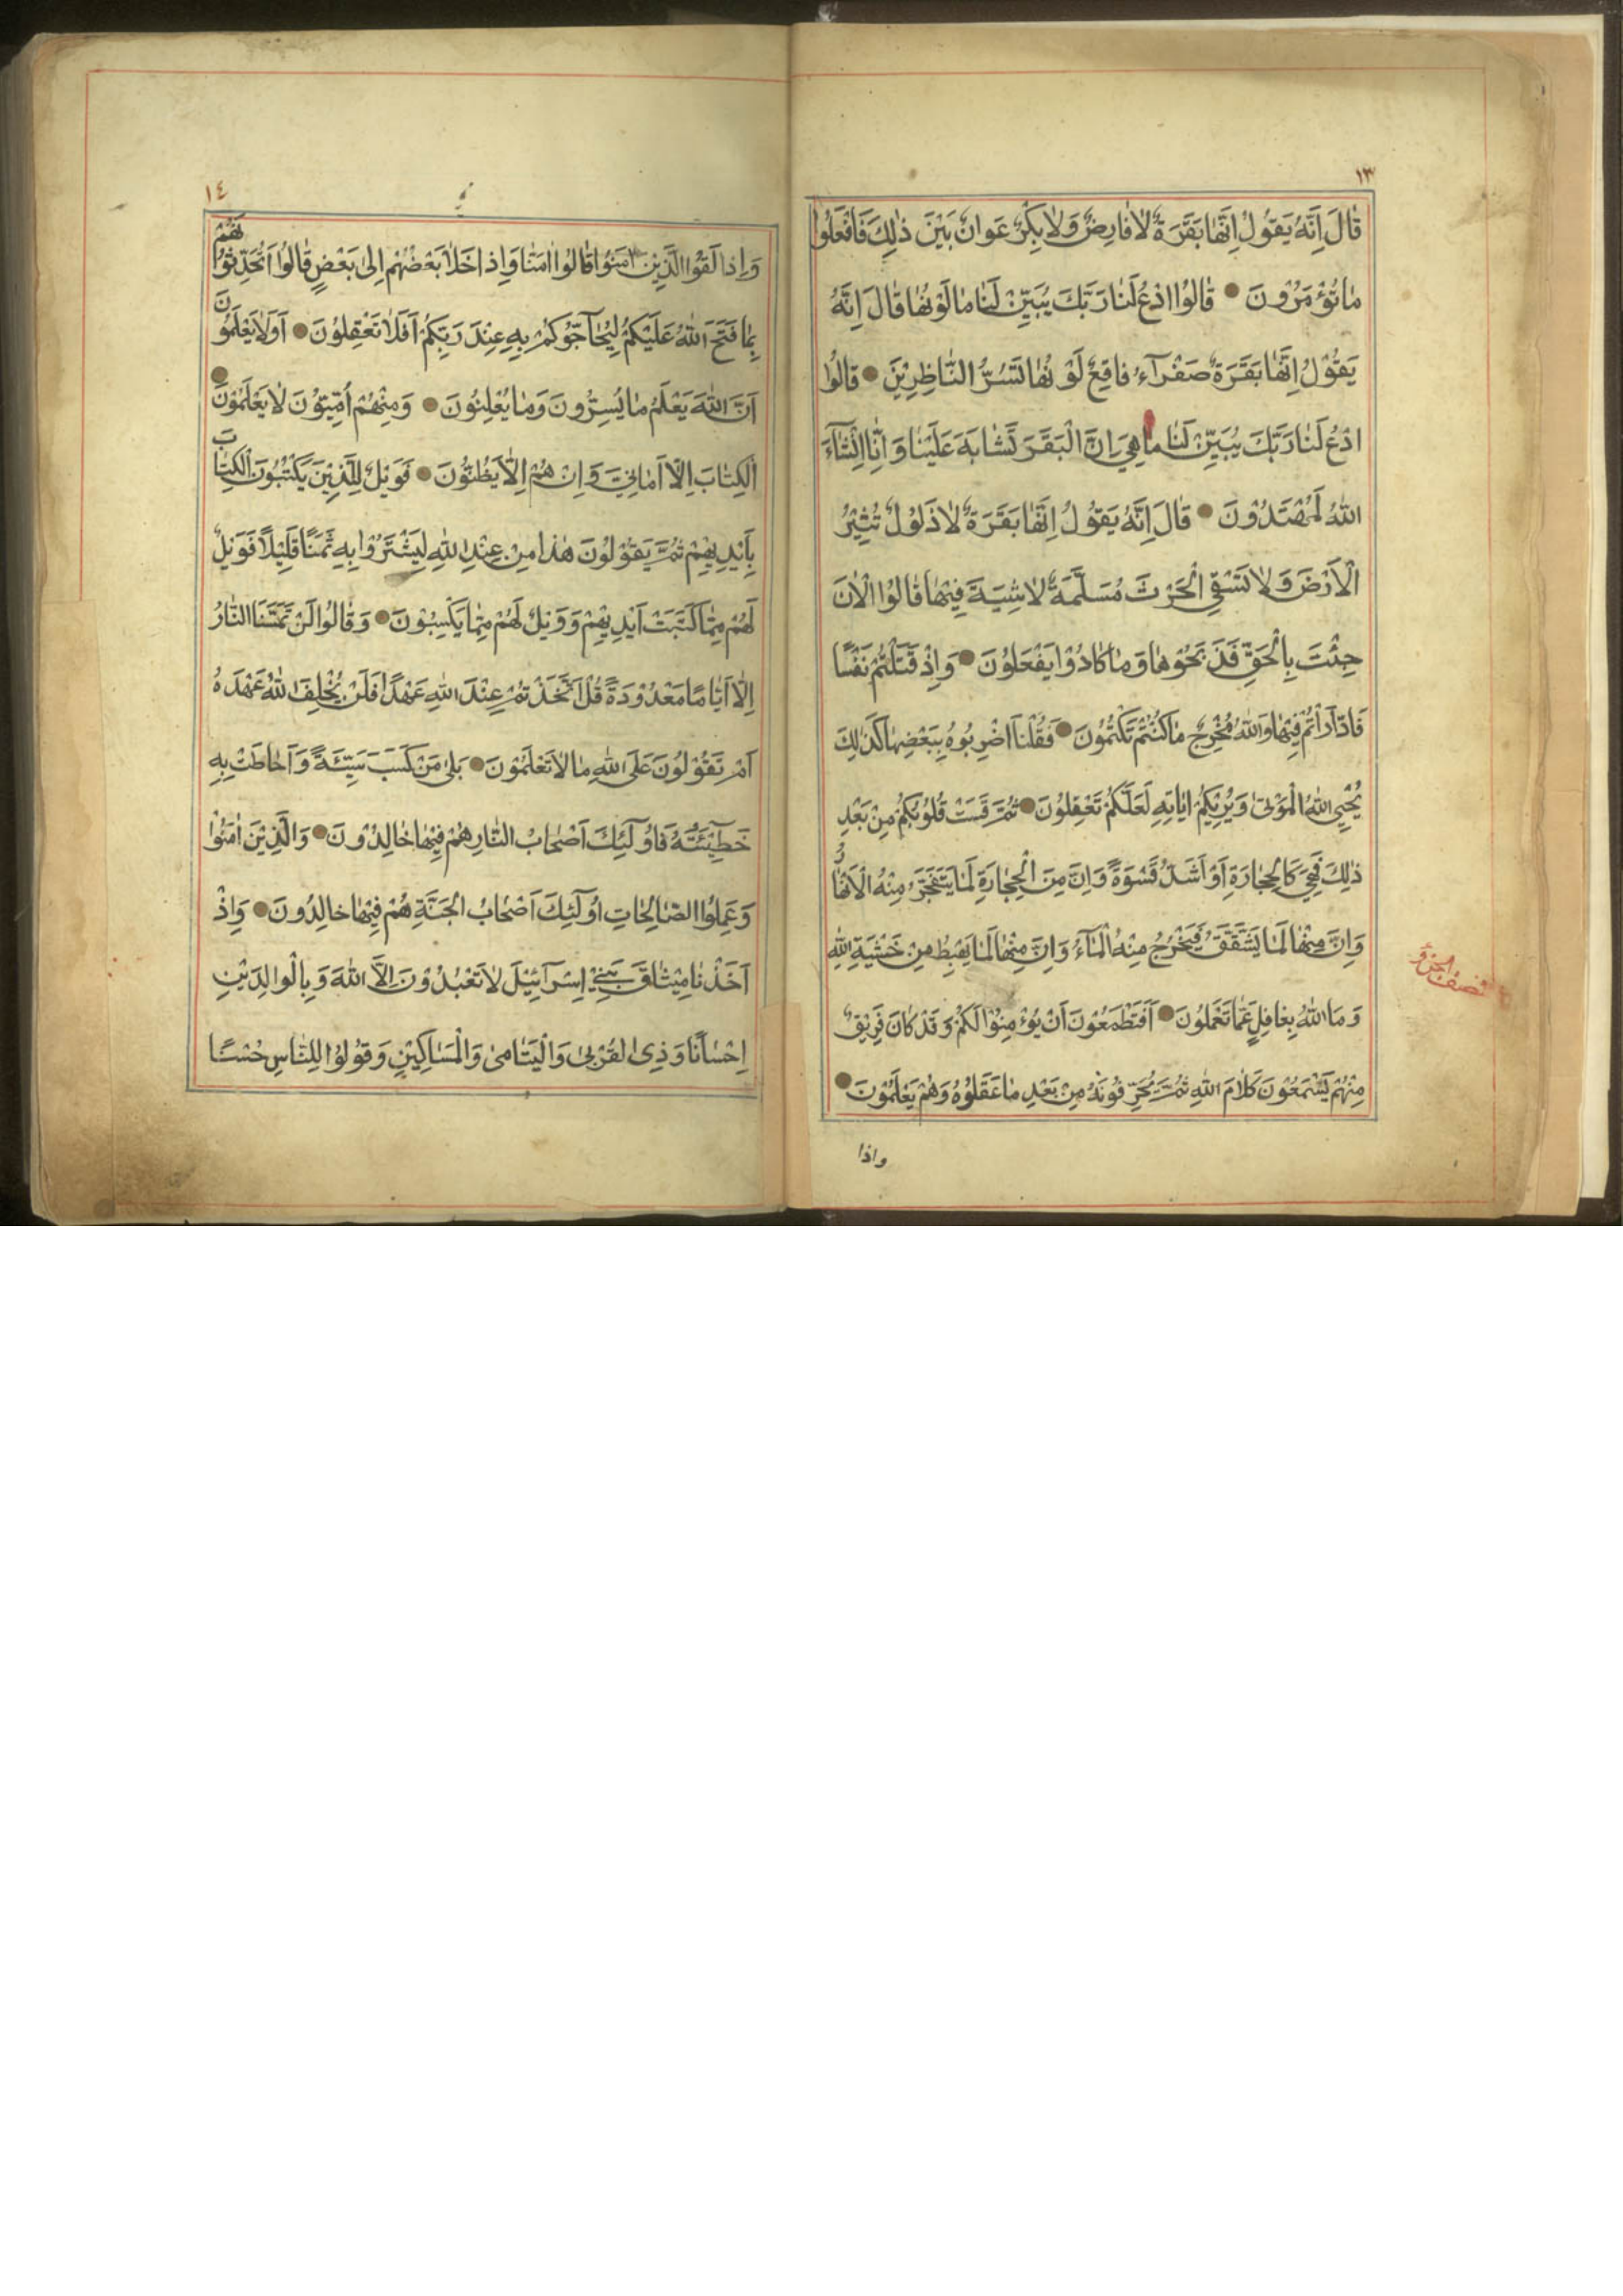 ١٣
قَالَ اِنَّهُ يَقُولُ اِنَّهَا بَقَرَةٌ لَا فَارِضٌ وَلَا بِكْرٌ عَوَانٌ بَيْنَ ذٰلِكَ فَافْعَلُوا
مَا تُؤْمَرُونَ ● قَالُوا ادْعُ لَنَا رَبَّكَ يُبَيِّنْ لَنَا مَا لَوْنُهَا قَالَ اِنَّهُ
يَقُولُ اِنَّهَا بَقَرَةٌ صَفْرَآءُ فَاقِعٌ لَوْنُهَا تَسُرُّ النَّاظِرِيْنَ ● قَالُوا
ادْعُ لَنَا رَبَّكَ يُبَيِّنْ لَنَا مَا هِيَ اِنَّ الْبَقَرَ تَشَابَهَ عَلَيْنَا وَاِنَّا اِنْشَآءَ
اللّٰهُ لَمُهْتَدُوْنَ ● قَالَ اِنَّهُ يَقُولُ اِنَّهَا بَقَرَةٌ لَا ذَلُوْلٌ تُثِيْرُ
الْاَرْضَ وَلَا تَسْقِي الْحَرْثَ مُسَلَّمَةٌ لَا شِيَةَ فِيْهَا قَالُوا الْاٰنَ
جِئْتَ بِالْحَقِّ فَذَبَحُوْهَا وَمَا كَادُوْا يَفْعَلُوْنَ ● وَاِذْ قَتَلْتُمْ نَفْسًا
فَادّٰرَأْتُمْ فِيْهَا وَاللّٰهُ مُخْرِجٌ مَا كُنْتُمْ تَكْتُمُوْنَ ● فَقُلْنَا اضْرِبُوهُ بِبَعْضِهَا كَذٰلِكَ
يُحْيِي اللّٰهُ الْمَوْتٰى وَيُرِيْكُمْ اٰيَاتِهِ لَعَلَّكُمْ تَعْقِلُوْنَ ● ثُمَّ قَسَتْ قُلُوْبُكُمْ مِنْ بَعْدِ
ذٰلِكَ فَهِيَ كَالْحِجَارَةِ اَوْ اَشَدُّ قَسْوَةً وَاِنَّ مِنَ الْحِجَارَةِ لَمَا يَتَفَجَّرُ مِنْهُ الْاَنْهَارُ
وَاِنَّ مِنْهَا لَمَا يَشَّقَّقُ فَيَخْرُجُ مِنْهُ الْمَآءُ وَاِنَّ مِنْهَا لَمَا يَهْبِطُ مِنْ خَشْيَةِ اللّٰهِ
وَمَا اللّٰهُ بِغَافِلٍ عَمَّا تَعْمَلُوْنَ ● اَفَتَطْمَعُوْنَ اَنْ يُؤْمِنُوْا لَكُمْ وَقَدْ كَانَ فَرِيْقٌ
مِنْهُمْ يَسْمَعُوْنَ كَلَامَ اللّٰهِ ثُمَّ يُحَرِّفُوْنَهُ مِنْ بَعْدِ مَا عَقَلُوْهُ وَهُمْ يَعْلَمُوْنَ ●
واذا
نصف الجزو
١٤
وَاِذَا لَقُوا الَّذِيْنَ اٰمَنُوا قَالُوا اٰمَنَّا وَاِذَا خَلَا بَعْضُهُمْ اِلٰى بَعْضٍ قَالُوا اَتُحَدِّثُوْنَهُمْ
بِمَا فَتَحَ اللّٰهُ عَلَيْكُمْ لِيُحَآجُّوكُمْ بِهِ عِنْدَ رَبِّكُمْ اَفَلَا تَعْقِلُوْنَ ● اَوَلَا يَعْلَمُوْنَ
اَنَّ اللّٰهَ يَعْلَمُ مَا يُسِرُّونَ وَمَا يُعْلِنُونَ ● وَمِنْهُمْ اُمِّيُّوْنَ لَا يَعْلَمُوْنَ ●
الْكِتَابَ اِلَّا اَمَانِيَّ وَاِنْ هُمْ اِلَّا يَظُنُّوْنَ ● فَوَيْلٌ لِلَّذِيْنَ يَكْتُبُوْنَ الْكِتَابَ
بِاَيْدِيْهِمْ ثُمَّ يَقُوْلُوْنَ هٰذَا مِنْ عِنْدِ اللّٰهِ لِيَشْتَرُوْا بِهِ ثَمَنًا قَلِيْلًا فَوَيْلٌ
لَهُمْ مِمَّا كَتَبَتْ اَيْدِيْهِمْ وَوَيْلٌ لَهُمْ مِمَّا يَكْسِبُوْنَ ● وَقَالُوا لَنْ تَمَسَّنَا النَّارُ
اِلَّا اَيَّامًا مَعْدُوْدَةً قُلْ اَتَّخَذْتُمْ عِنْدَ اللّٰهِ عَهْدًا فَلَنْ يُخْلِفَ اللّٰهُ عَهْدَهُ
اَمْ تَقُوْلُوْنَ عَلَى اللّٰهِ مَا لَا تَعْلَمُوْنَ ● بَلٰى مَنْ كَسَبَ سَيِّئَةً وَاَحَاطَتْ بِهِ
خَطِيْئَتُهُ فَاُولٰٓئِكَ اَصْحَابُ النَّارِ هُمْ فِيْهَا خَالِدُوْنَ ● وَالَّذِيْنَ اٰمَنُوْا
وَعَمِلُوا الصَّالِحَاتِ اُولٰٓئِكَ اَصْحَابُ الْجَنَّةِ هُمْ فِيْهَا خَالِدُونَ ● وَاِذْ
اَخَذْنَا مِيْثَاقَ بَنِيْ اِسْرَآئِيْلَ لَا تَعْبُدُوْنَ اِلَّا اللّٰهَ وَبِالْوَالِدَيْنِ
اِحْسَانًا وَذِي الْقُرْبٰى وَالْيَتَامٰى وَالْمَسَاكِيْنِ وَقُوْلُوْا لِلنَّاسِ حُسْنًا